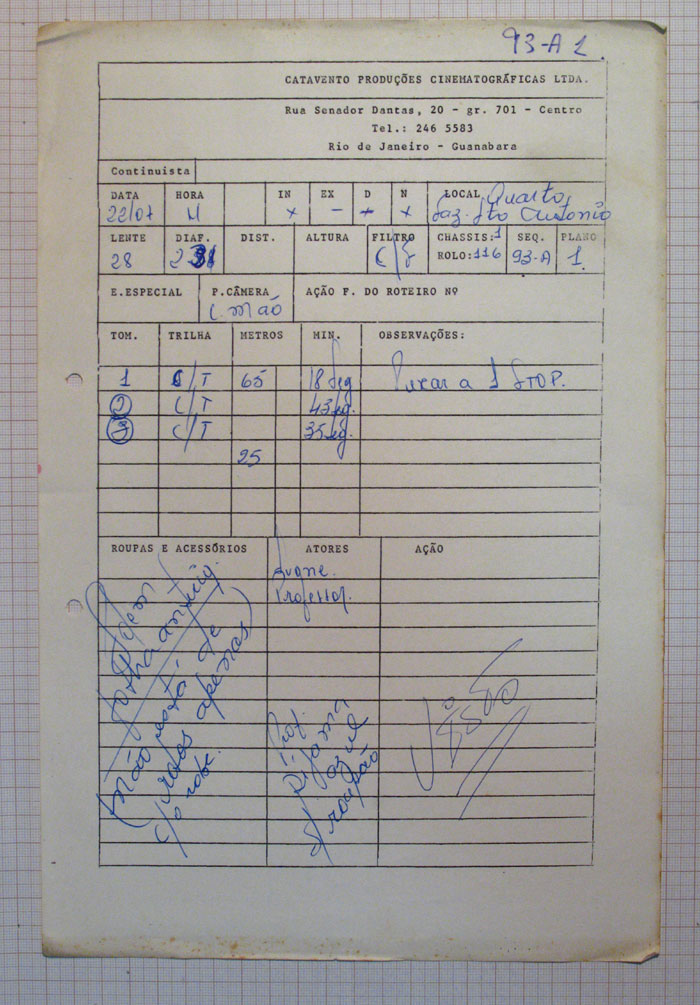 93-A 1
CATAVENTO PRODUÇÕES CINEMATOGRÁFICAS LTDA.
Rua Senador Dantas, 20 - gr. 701 - Centro
Tel.: 246 5583
Rio de Janeiro - Guanabara
Continuista
DATA HORA IN EX D N LOCAL Quarto
22/07 + - + x Faz. Sto Antonio
LENTE DIAF. DIST. ALTURA FILTRO CHASSIS: 1 SEQ. PLANO
28 ROLO: 116 93-A 1
E.ESPECIAL P.CÂMERA AÇÃO F. DO ROTEIRO Nº
mão
TOM. TRILHA METROS MIN. OBSERVAÇÕES:
1 C/T 65 18 seg Puxar a 1 STOP.
2 C/T 43 seg.
3 C/T 35 seg.
25
ROUPAS E ACESSÓRIOS ATORES AÇÃO
Ivone.
Professor.
Idem
folha
(não está de
rolos apenas)
c/o robe.
Prof.
Pijama
azul
roupão